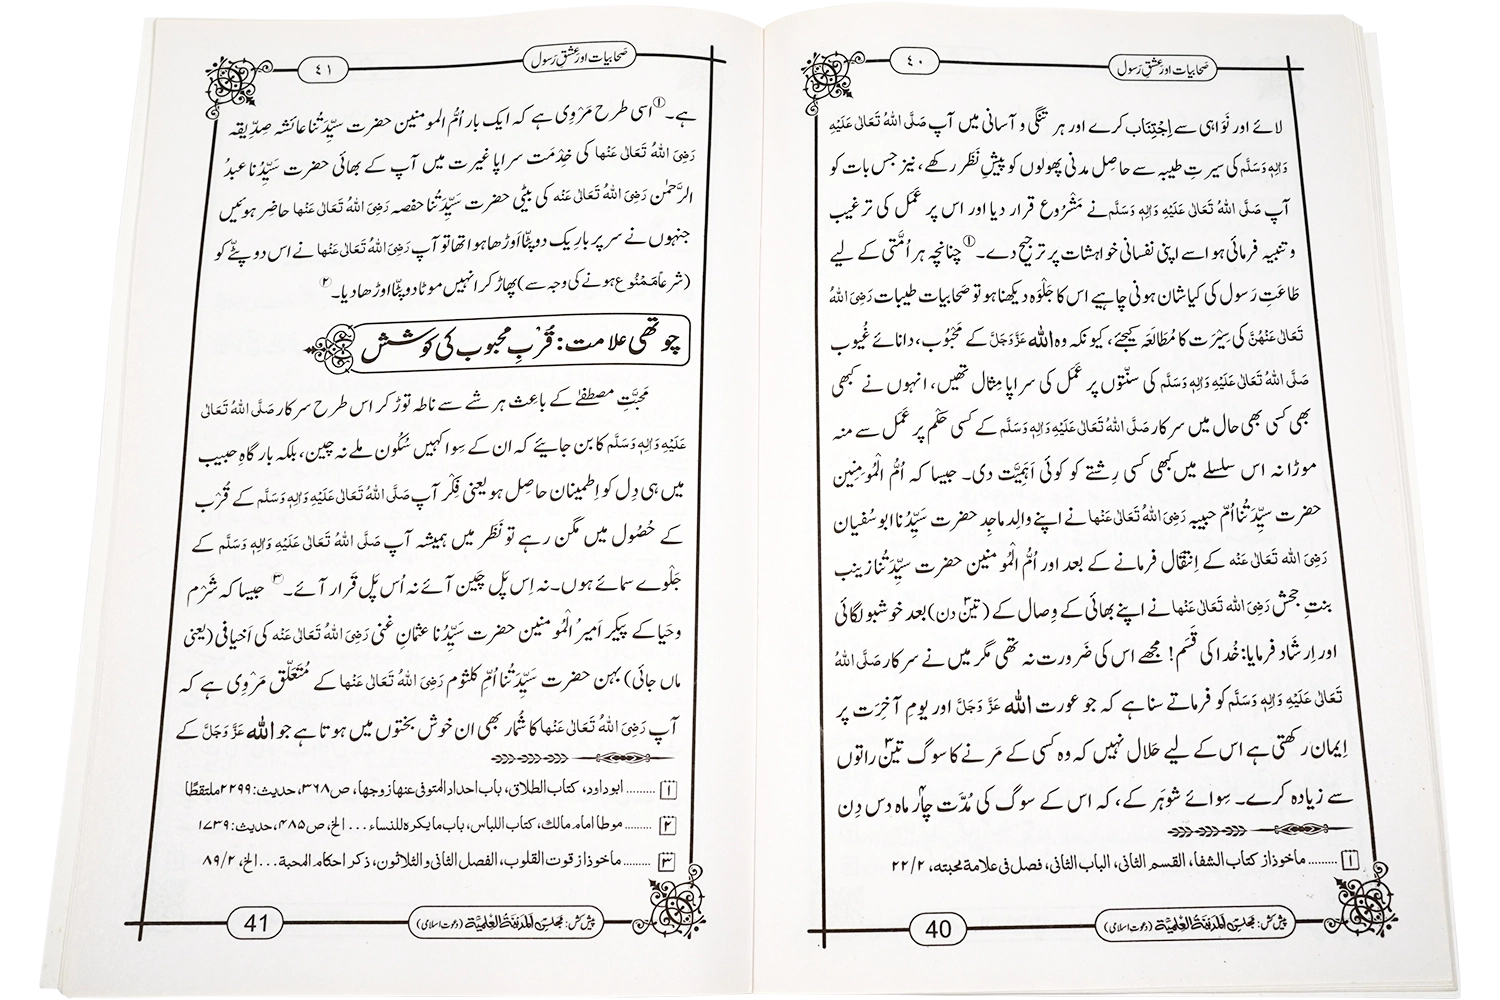 صحابیات اور عشقِ رسول
٤٠
لائے اور نَواہی سے اِجْتِنَاب کرے اور ہر تنگی و آسانی میں آپ صَلَّی اللہُ تَعَالٰی عَلَیْہِ
وَاٰلِہٖ وَسَلَّم کی سیرتِ طیبہ سے حاصِل مدنی پھولوں کو پیشِ نَظَر رکھے، نیز جس بات کو
آپ صَلَّی اللہُ تَعَالٰی عَلَیْہِ وَاٰلِہٖ وَسَلَّم نے مَشْرُوع قرار دیا اور اس پر عَمَل کی ترغیب
و تنبیہ فرمائی ہو اسے اپنی نفسانی خواہشات پر ترجیح دے۔ ① چنانچہ ہر اُمَّتی کے لیے
طَاعَتِ رَسول کی کیا شان ہونی چاہیے اس کا جَلْوَہ دیکھنا ہو تو صَحابیات طیبات رَضِیَ اللہُ
تَعَالٰی عَنْہُنَّ کی سِیْرَت کا مُطَالَعَہ کیجئے، کیونکہ وہ اللہ عَزَّ وَجَلَّ کے مَحْبُوب، دانائے غُیوب
صَلَّی اللہُ تَعَالٰی عَلَیْہِ وَاٰلِہٖ وَسَلَّم کی سنّتوں پر عَمَل کی سراپا مِثال تھیں، انہوں نے کبھی
بھی کسی بھی حال میں سرکار صَلَّی اللہُ تَعَالٰی عَلَیْہِ وَاٰلِہٖ وَسَلَّم کے کسی حُکْم پر عَمَل سے منہ
موڑا نہ اس سلسلے میں کبھی کسی رِشتے کو کوئی اَہَمِیَّت دی۔ جیسا کہ اُمُّ الْمُومِنِین
حضرت سَیِّدَتُنا اُمِّ حبیبہ رَضِیَ اللہُ تَعَالٰی عَنْہا نے اپنے والِد ماجِد حضرت سَیِّدُنا ابوسُفیان
رَضِیَ اللہ تَعَالٰی عَنْہ کے اِنتقال فرمانے کے بعد اور اُمُّ الْمُومنین حضرت سَیِّدَتُنا زینب
بنتِ جحش رَضِیَ اللہ تَعَالٰی عَنْہا نے اپنے بھائی کے وِصال کے (تین۳ دن) بعد خوشبو لگائی
اور اِرشاد فرمایا: خُدا کی قَسَم! مجھے اس کی ضَرورت نہ تھی مگر میں نے سرکار صَلَّی اللہُ
تَعَالٰی عَلَیْہِ وَاٰلِہٖ وَسَلَّم کو فرماتے سنا ہے کہ جو عورت اللہ عَزَّ وَجَلَّ اور یومِ آخِرَت پر
اِیمان رکھتی ہے اس کے لیے حَلال نہیں کہ وہ کسی کے مَرنے کا سوگ تین۳ راتوں
سے زیادہ کرے۔ سِوائے شوہَر کے، کہ اس کے سوگ کی مُدَّت چار۴ ماہ دس دِن
۱ ......... ماخوذ از کتاب الشفا، القسم الثانی، الباب الثانی، فصل فی علامة محبته، ۲/ ۲۲
پیش کش: مجلس المدینۃ العلمیۃ (دعوتِ اسلامی)
40
صحابیات اور عشقِ رسول
٤١
ہے۔ ① اسی طرح مَرْوِی ہے کہ ایک بار اُمُّ المومنین حضرت سَیِّدَتُنا عائشہ صِدِّیقہ
رَضِیَ اللہُ تَعَالٰی عَنْہا کی خِدْمَت سراپا غیرت میں آپ کے بھائی حضرت سَیِّدُنا عبدُ
الرَّحمٰن رَضِیَ اللہُ تَعَالٰی عَنْہ کی بیٹی حضرت سَیِّدَتُنا حفصہ رَضِیَ اللہُ تَعَالٰی عَنْہا حاضِر ہوئیں
جنہوں نے سر پر باریک دوپٹّا اَوڑھا ہوا تھا تو آپ رَضِیَ اللہُ تَعَالٰی عَنْہا نے اس دوپٹّے کو
(شرعاً مَمْنُوع ہونے کی وجہ سے) پھاڑ کر انہیں موٹا دوپٹّا اوڑھا دیا۔ ②
چوتھی علامت: قُربِ محبوب کی کوشش
مَحَبَّتِ مصطفےٰ کے باعِث ہر شے سے ناطہ توڑ کر اس طرح سرکار صَلَّی اللہُ تَعَالٰی
عَلَیْہِ وَاٰلِہٖ وَسَلَّم کا بن جائیے کہ ان کے سِوا کہیں سُکُون ملے نہ چین، بلکہ بارگاہِ حبیب
میں ہی دِل کو اِطمینان حاصِل ہو یعنی فِکْر آپ صَلَّی اللہُ تَعَالٰی عَلَیْہِ وَاٰلِہٖ وَسَلَّم کے قُرْب
کے حُصُول میں مگن رہے تو نَظَر میں ہمیشہ آپ صَلَّی اللہُ تَعَالٰی عَلَیْہِ وَاٰلِہٖ وَسَلَّم کے
جَلْوے سمائے ہوں۔ نہ اِس پَل چَین آئے نہ اُس پَل قَرار آئے۔ ③ جیسا کہ شَرْم
وحَیا کے پیکر امیرُ الْمُومنین حضرت سَیِّدُنا عثمانِ غنی رَضِیَ اللہُ تَعَالٰی عَنْہ کی اَخیافی (یعنی
ماں جائی) بہن حضرت سَیِّدَتُنا اُمِّ کلثوم رَضِیَ اللہُ تَعَالٰی عَنْہا کے مُتَعَلِّق مَرْوِی ہے کہ
آپ رَضِیَ اللہُ تَعَالٰی عَنْہا کا شُمار بھی ان خوش بختوں میں ہوتا ہے جو اللہ عَزَّ وَجَلَّ کے
۱ ......... ابوداود، کتاب الطلاق، باب احداد المتوفی عنها زوجها، ص ۳۶۸، حدیث: ۲۲۹۹ ملتقطًا
۲ ......... موطا امام مالك، کتاب اللباس، باب ما یکره للنساء ... الخ، ص ۴۸۵، حدیث: ۱۷۳۹
۳ ......... ماخوذ از قوت القلوب، الفصل الثانی والثلاثون، ذکر احکام المحبة ... الخ، ۲/ ۸۹
پیش کش: مجلس المدینۃ العلمیۃ (دعوتِ اسلامی)
41